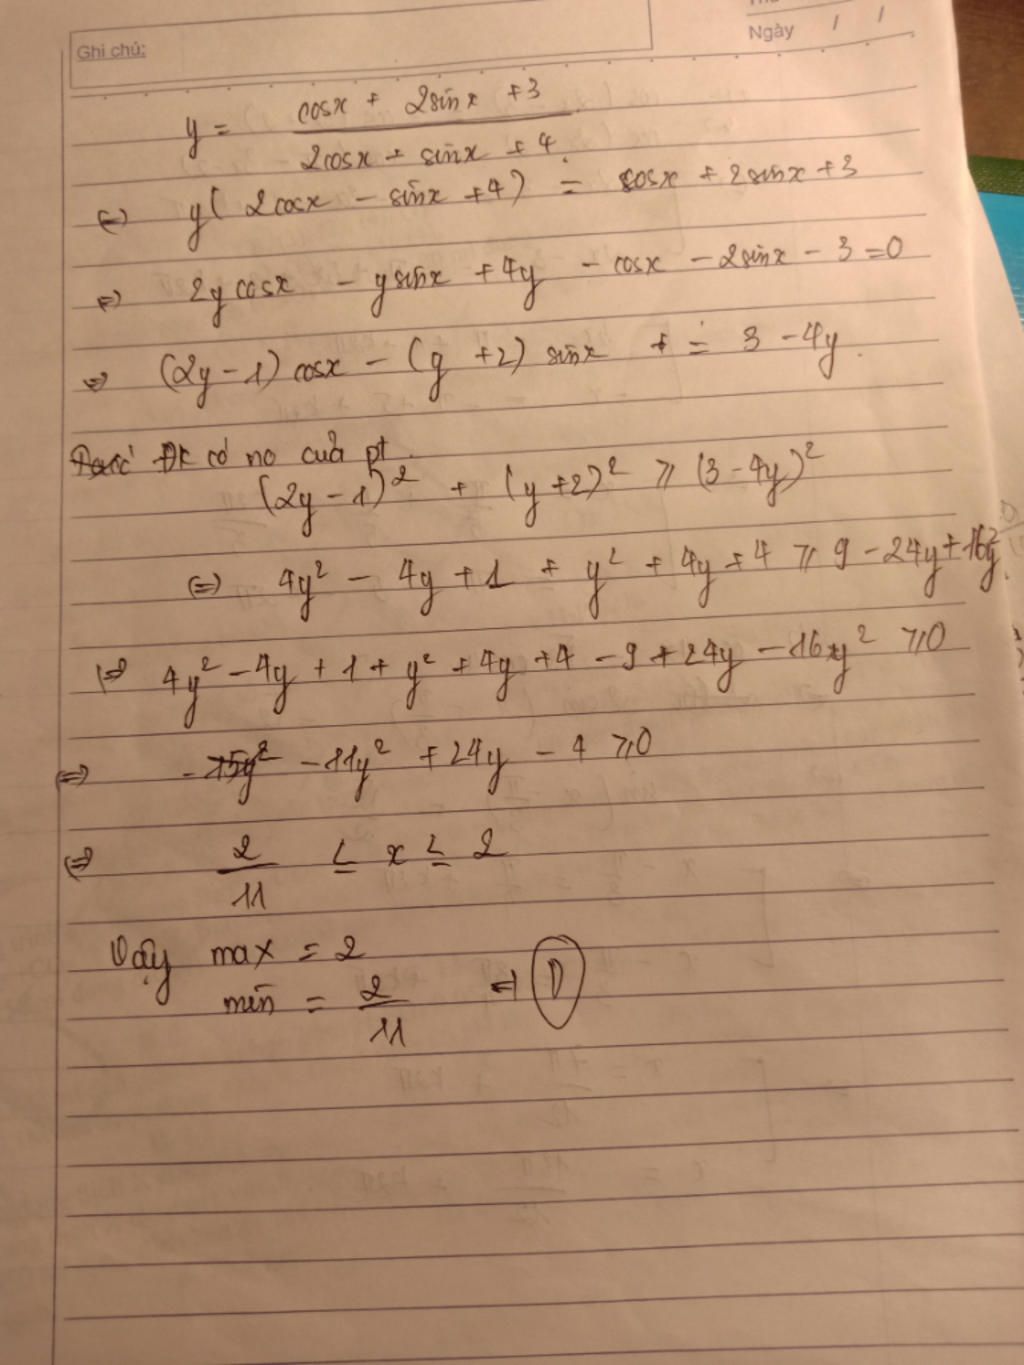 Ghi chú:
Ngày / /
y = (cosx + 2sinx + 3) / (2cosx - sinx + 4)
(=) y( 2cosx - sinx + 4 ) = cosx + 2sinx + 3
(=) 2y cosx - y sinx + 4y - cosx - 2sinx - 3 = 0
(=) (2y - 1) cosx - (y + 2) sinx = 3 - 4y
ĐK có no của pt
(2y - 1)² + (y + 2)² ⩾ (3 - 4y)²
(=) 4y² - 4y + 1 + y² + 4y + 4 ⩾ 9 - 24y + 16y²
(=) 4y² - 4y + 1 + y² + 4y + 4 - 9 + 24y - 16y² ⩾ 0
(=) - 11y² + 24y - 4 ⩾ 0
(=) 2/11 ≤ x ≤ 2
Vậy max = 2
min = 2/11 => D